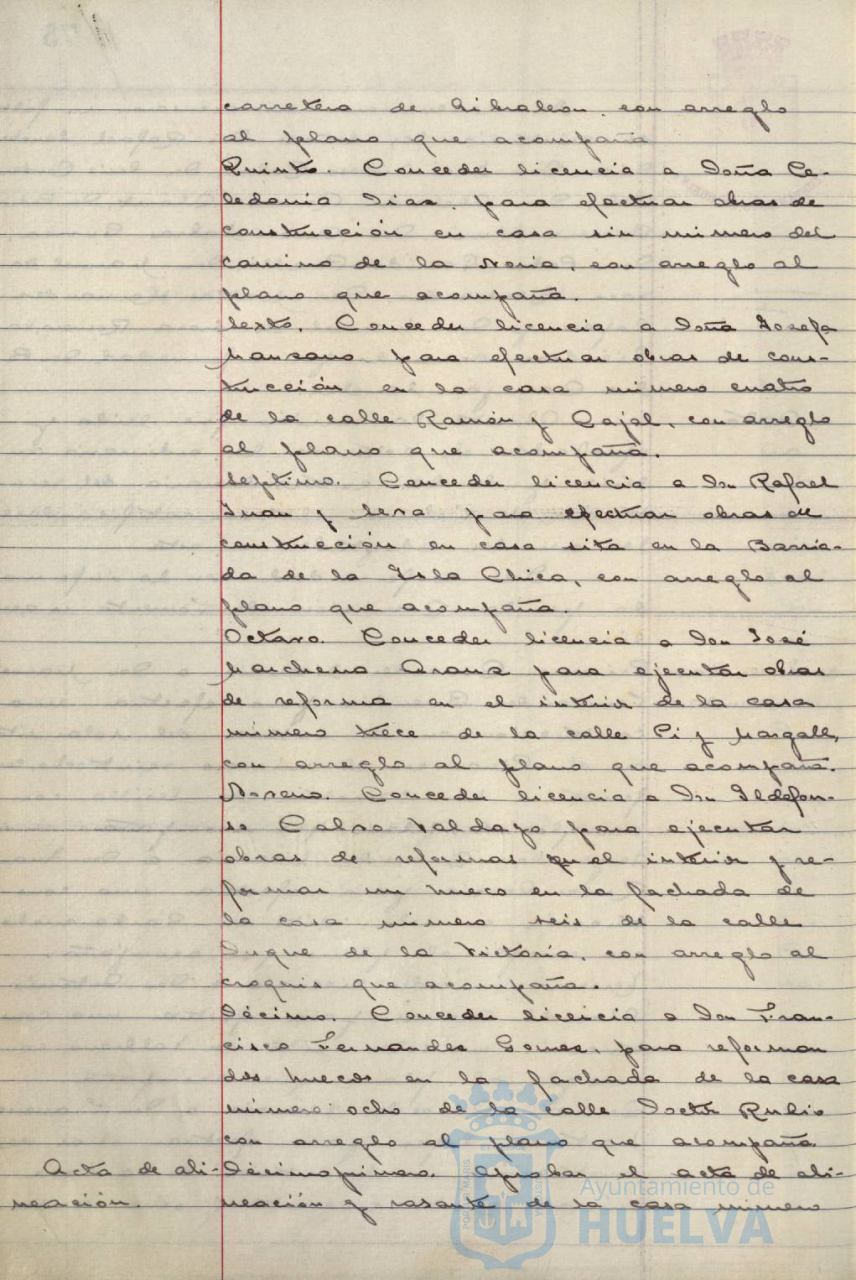 carretera de Gibraleon, con arreglo
al plano que acompaña
Quinto. Conceder licencia a Doña Ce-
ledonia Diaz, para efectuar obras de
construcción en casa sin número del
camino de la Noria, con arreglo al
plano que acompaña.
Sexto. Conceder licencia a Doña Josefa
Manzano para efectuar obras de cons-
trucción en la casa número cuatro
de la calle Ramón y Cajal, con arreglo
al plano que acompaña.
Septimo. Conceder licencia a Don Rafael
Juan y Seva para efectuar obras de
construcción en casa sita en la Barria-
da de la Isla Chica, con arreglo al
plano que acompaña.
Octavo. Conceder licencia a Don José
Marchena Aranz para ejecutar obras
de reforma en el interior de la casa
número trece de la calle Pi y Margall,
con arreglo al plano que acompaña.
Noveno. Conceder licencia a Don Ildefon-
so Calvo Valdayo para ejecutar
obras de reformas en el interior y re-
formar un hueco en la fachada de
la casa número seis de la calle
Duque de la Victoria, con arreglo al
croquis que acompaña.
Décimo. Conceder licencia a Don Fran-
cisco Fernandez Gomez, para reformar
dos huecos en la fachada de la casa
número ocho de la calle Doctor Rubio
con arreglo al plano que acompaña
Acta de ali-
neación.
Décimoprimero. Aprobar el acta de ali-
neación y rasante de la casa número
Ayuntamiento de
HUELVA